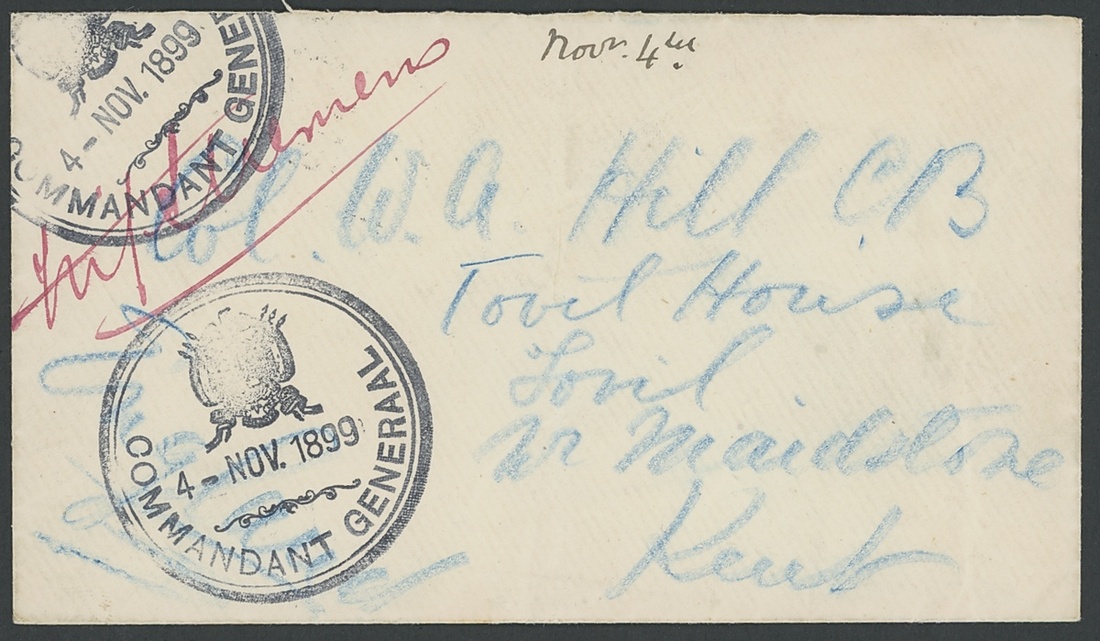 Novr. 4th.
4 - NOV. 1899
COMMANDANT GENER
Col. W. A. Hill C.B
Tovil House
Tovil
nr Maidstone
Kent
4 - NOV. 1899
COMMANDANT GENERAAL